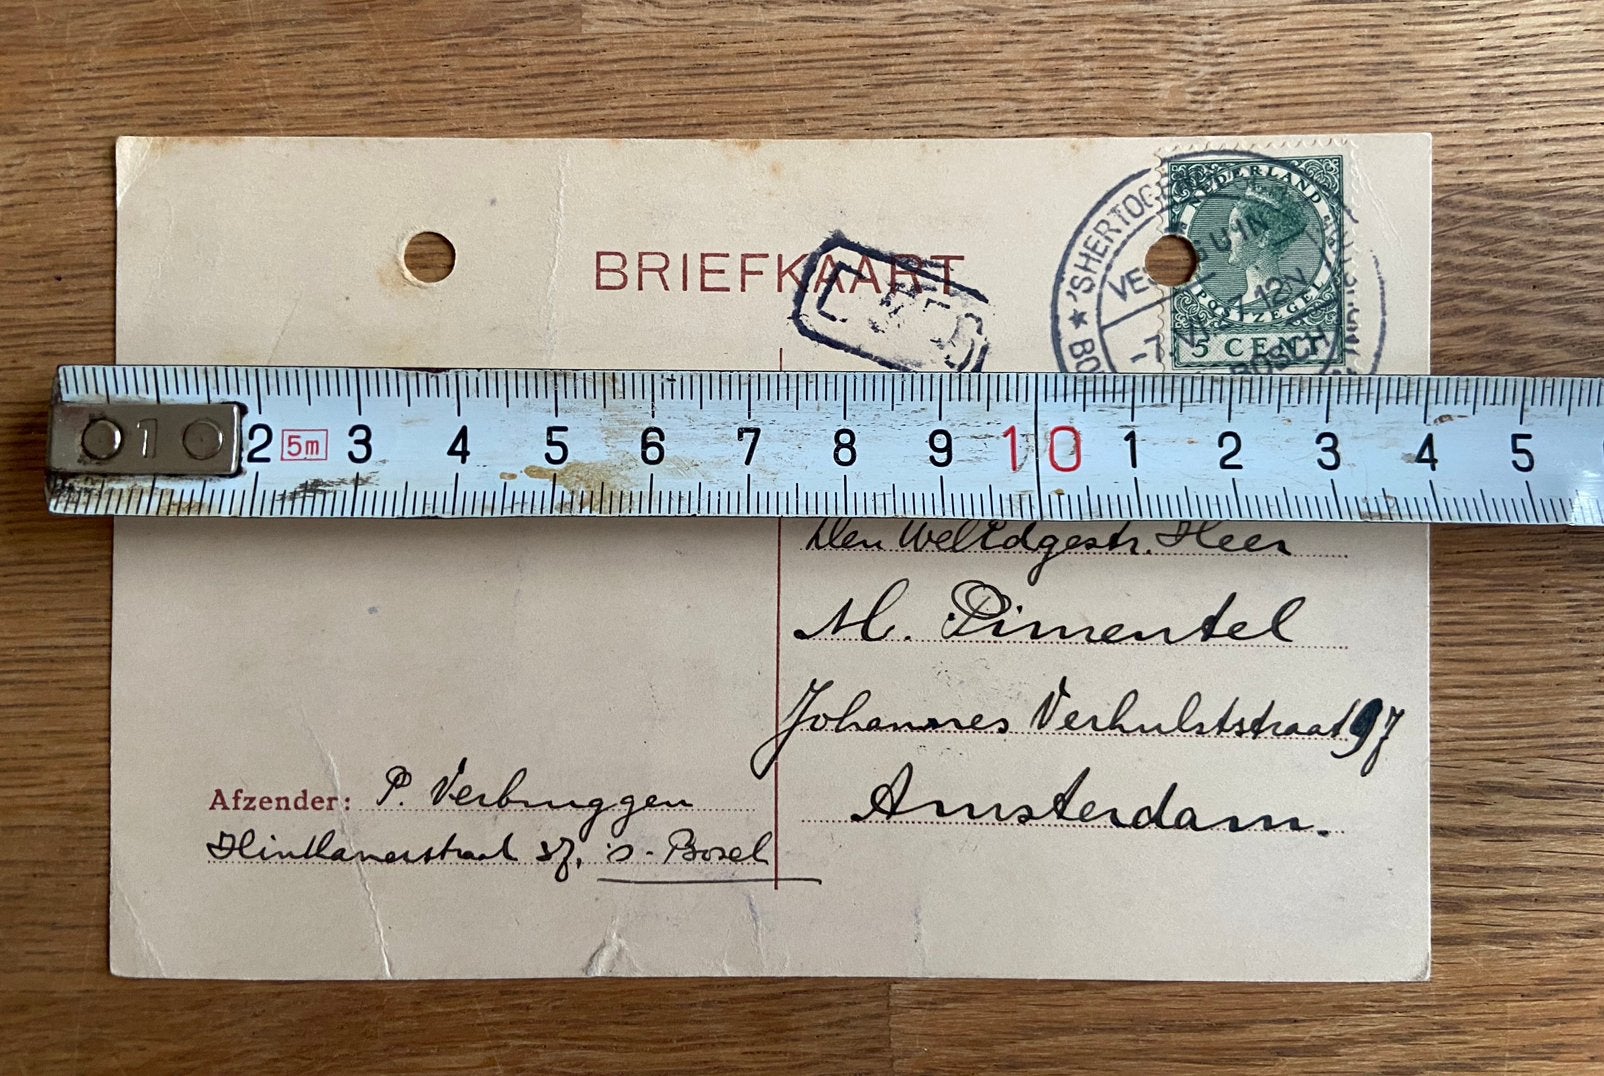 BRIEFKAART
NEDERLAND
POSTZEGEL
5 CENT
1 2 5m 3 4 5 6 7 8 9 10 1 2 3 4 5
Den WelEdgestr. Heer
M. Pimentel
Johannes Verhulststraat 97
Amsterdam.
Afzender: P. Verbruggen
Hinthamerstraat 37, 's-Bosch